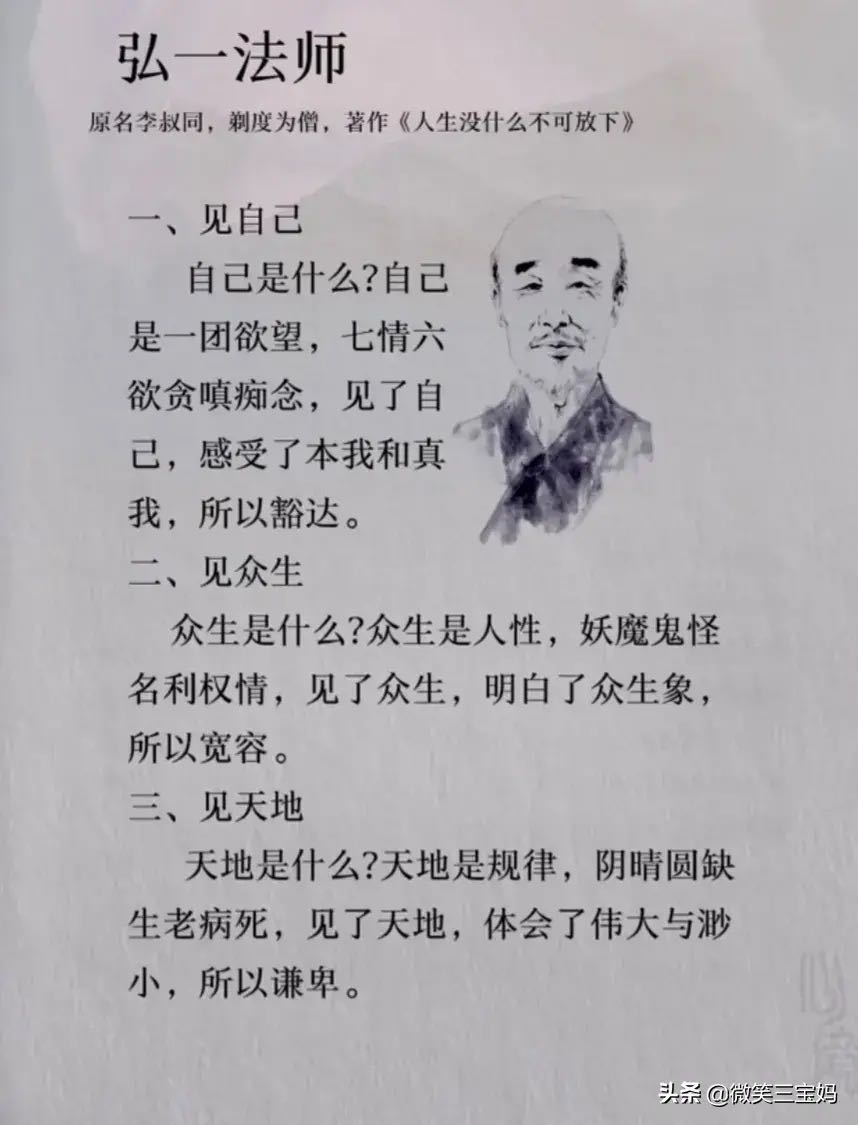 弘一法师
原名李叔同，剃度为僧，著作《人生没什么不可放下》
一、见自己
自己是什么?自己
是一团欲望，七情六
欲贪嗔痴念，见了自
己，感受了本我和真
我，所以豁达。
二、见众生
众生是什么?众生是人性，妖魔鬼怪
名利权情，见了众生，明白了众生象，
所以宽容。
三、见天地
天地是什么?天地是规律，阴晴圆缺
生老病死，见了天地，体会了伟大与渺
小，所以谦卑。
头条 @微笑三宝妈